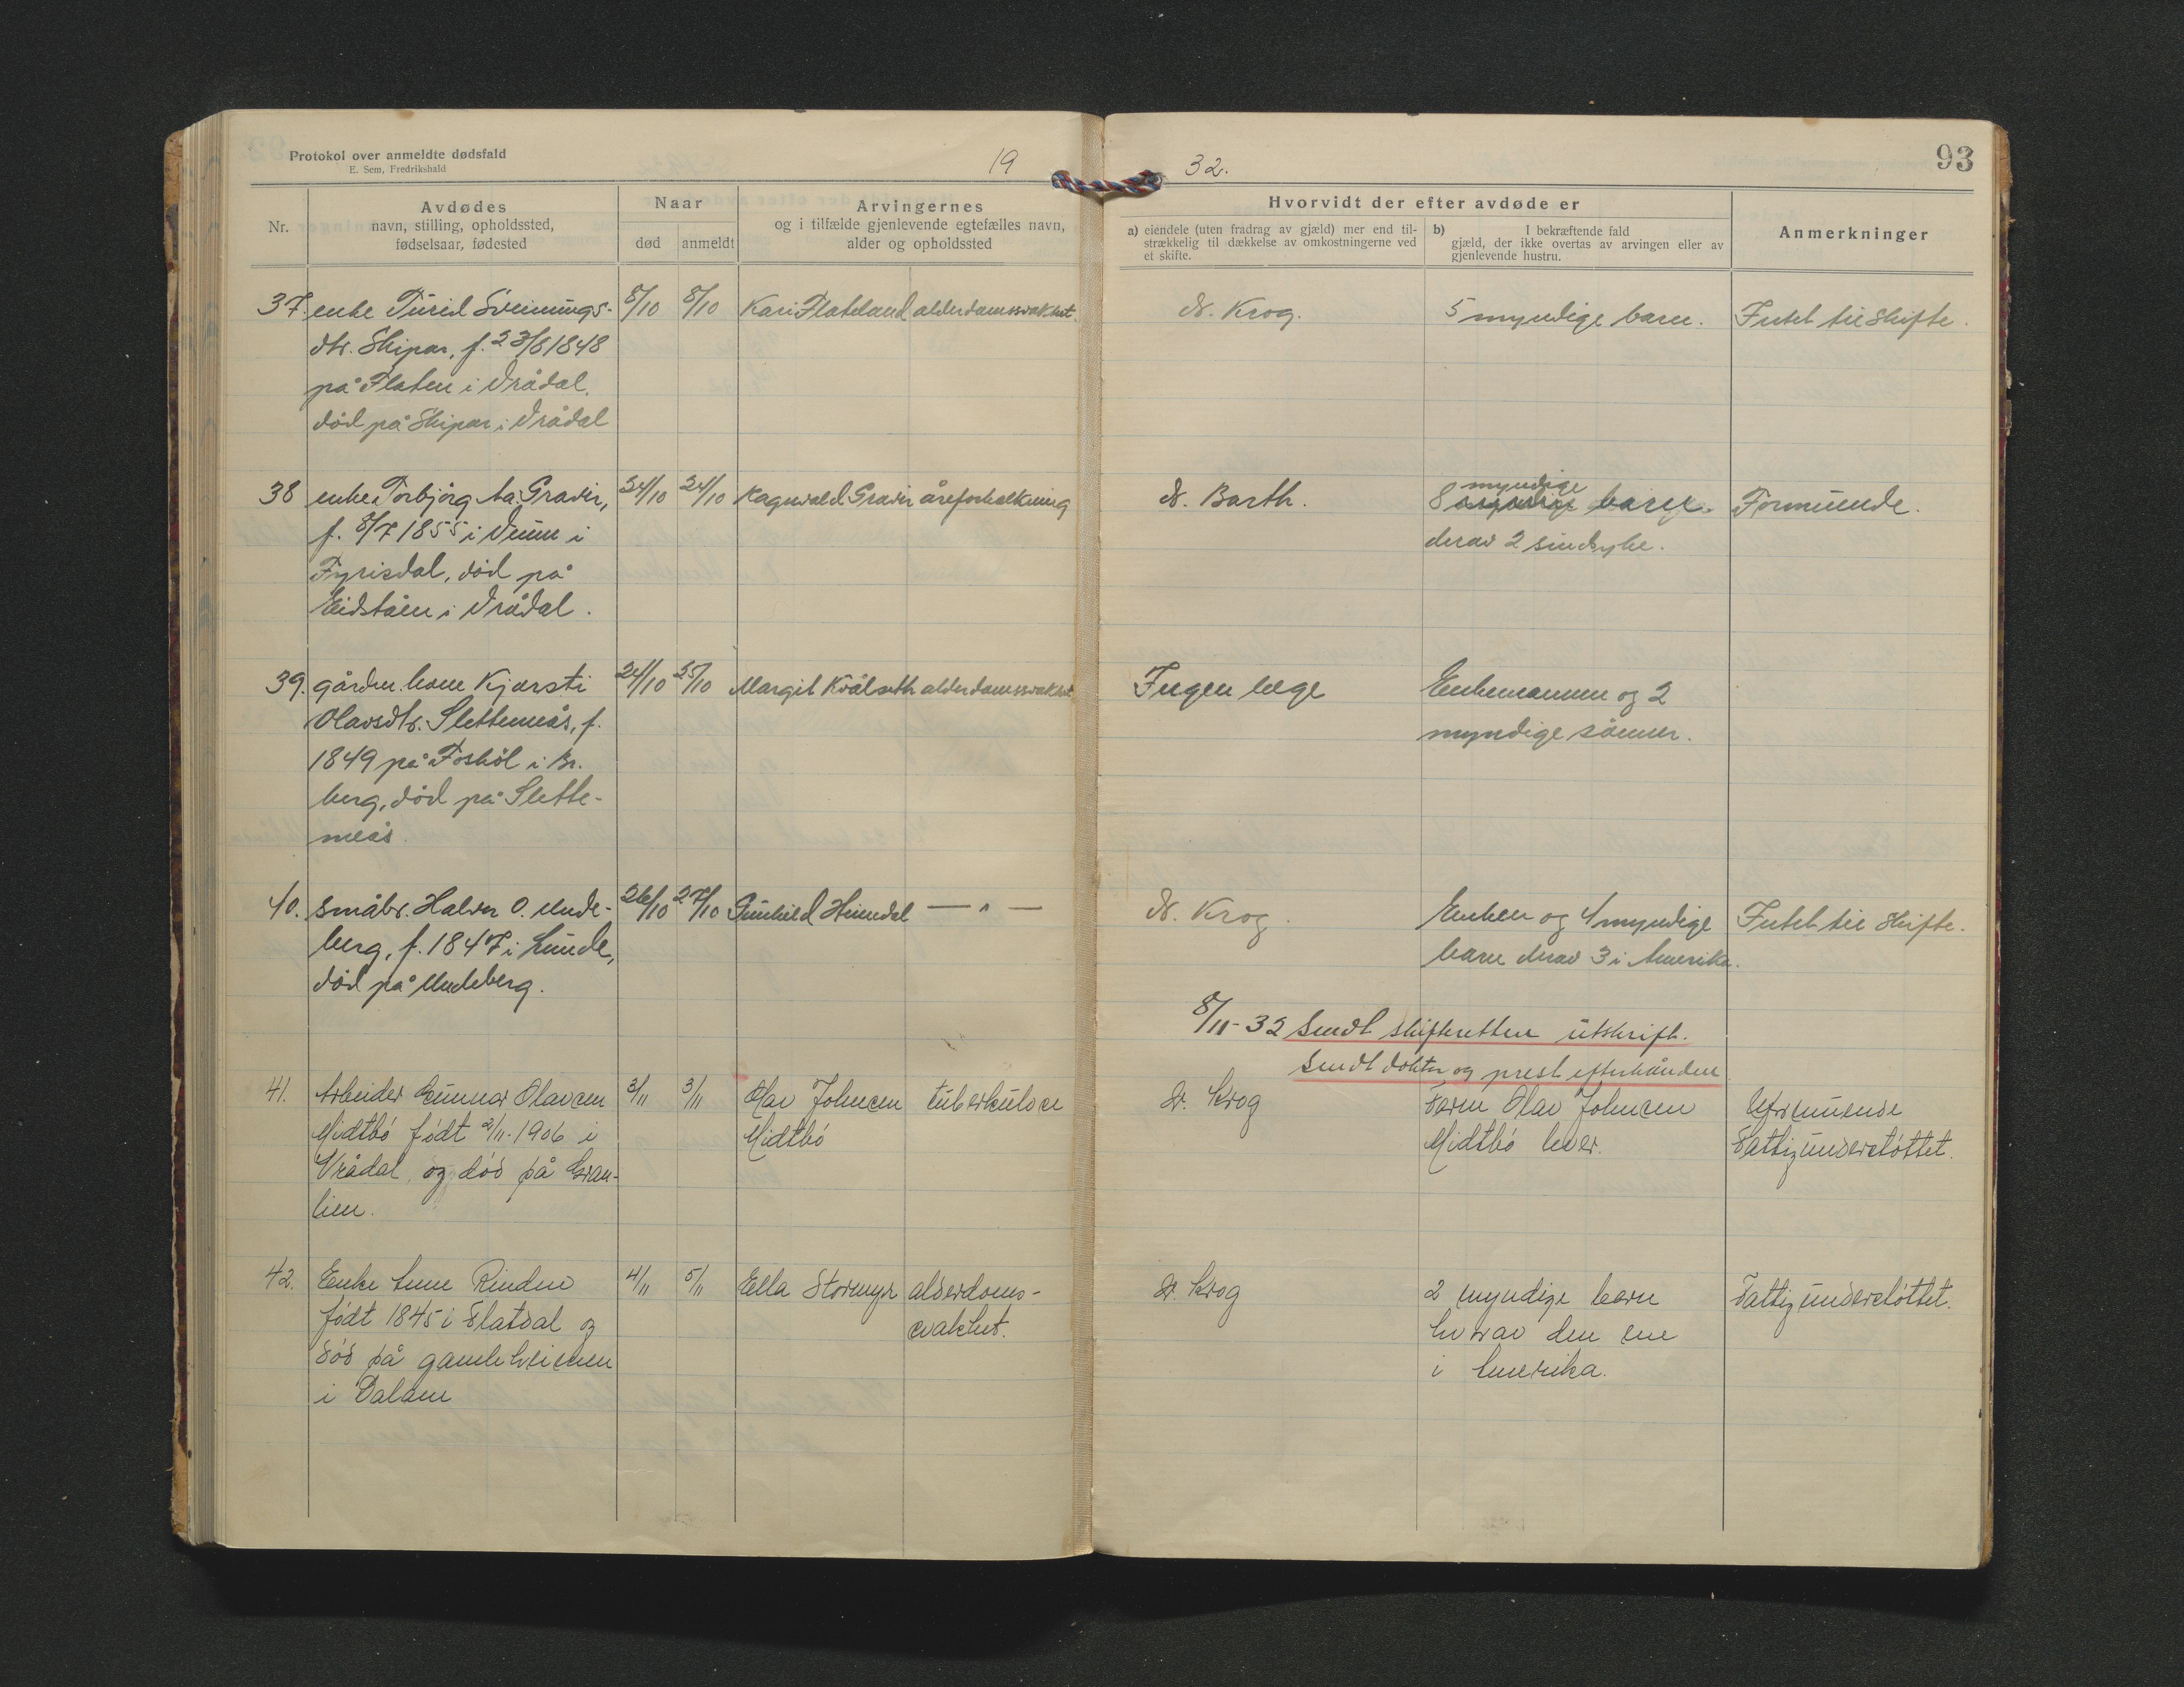 Protokol over anmeldte dødsfald
E. Sem, Fredrikshald
19
32.
93
Nr.
Avdødes
navn, stilling, opholdssted,
fødselsaar, fødested
Naar
død
anmeldt
Arvingernes
og i tilfælde gjenlevende egtefælles navn,
alder og opholdssted
Hvorvidt der efter avdøde er
a) eiendele (uten fradrag av gjæld) mer end til-
strækkelig til dækkelse av omkostningerne ved
et skifte.
b) I bekræftende fald
gjæld, der ikke overtas av arvingen eller av
gjenlevende hustru.
Anmerkninger
37. enke Turid Sveinungs- 8/10 8/10 Kari Flateland alderdomssvakhet. d. Krog. 5 myndige barn. Intet til skifte.
dtr. Skipar, f. 23/8 1848
på Flaten i Vrådal,
død på Skipar i Vrådal
38 enke Torbjørg Aa. Gravir, 24/10 24/10 Ragnvald Gravir åreforkalkning d. Barth. 8 myndige barn. Formuende.
f. 8/7 1855 i Veum i derav 2 sindsyke.
Fyrisdal, død på
Eidståen i Vrådal.
39. gårdm. kone Kjersti 24/10 25/10 Margit Kvålseth alderdomssvakhet Ingen læge Enkemannen og 2
Olavsdtr. Slettemeås, f. myndige sønner.
1849 på Foshól i Br.
berg, død på Slette-
meås.
40. småbr. Halvor O. Unde- 26/10 27/10 Gunhild Heimdal — " — d. Krog. Enken og 4 myndige Intet til skifte.
berg, f. 1847 i Lunde, barn derav 3 i Amerika.
død på Undeberg.
8/11-32 Sendt skifteretten utskrift.
Sendt doktor og prest efterhånden
41. Arbeider Gunnar Olavsen 3/11 3/11 Olav Johnsen tuberkulose dr. Krog Faren Olav Johnsen Uformuende
Midtbö født 2/11-1906 i Midtbö Midtbö lever. Fattigunderstöttet.
Vrådal, og död på Gran-
lien.
42. Enke Anne Rinden 4/11 5/11 Ella Stormyr alderdoms- dr. Krog 2 myndige barn Fattigunderstöttet.
født 1845 i Flatdal og svakhet. hvorav den ene
död på gamleheimen i Amerika.
i Dalane